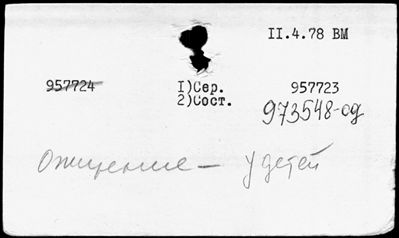 II.4.78 ВМ
957724 I)Сер. 957723
2)Сост. 973548-од
Ожирение — у детей